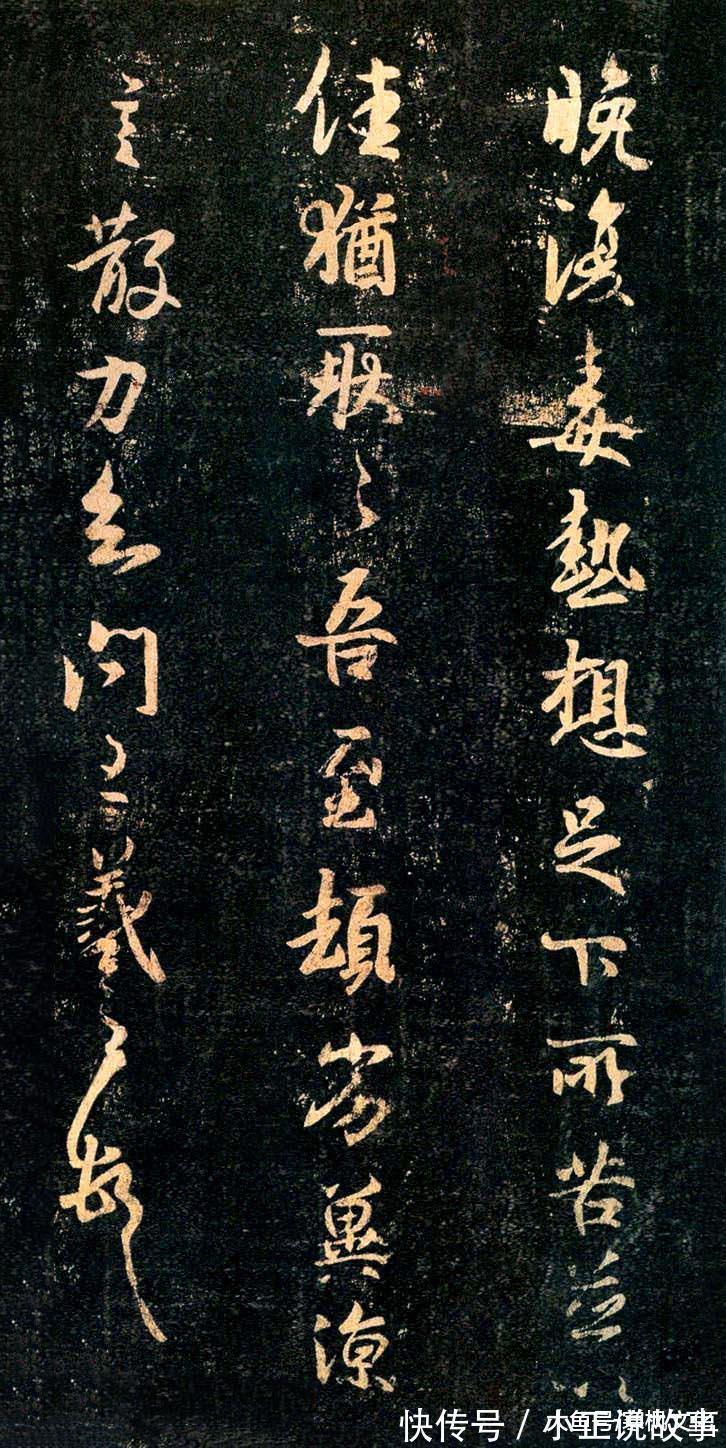 晚復毒熱想足下所苦並以
佳猶耿耿吾至頓劣冀涼
言散力知問王羲之頓首
快传号 / 小正说故事